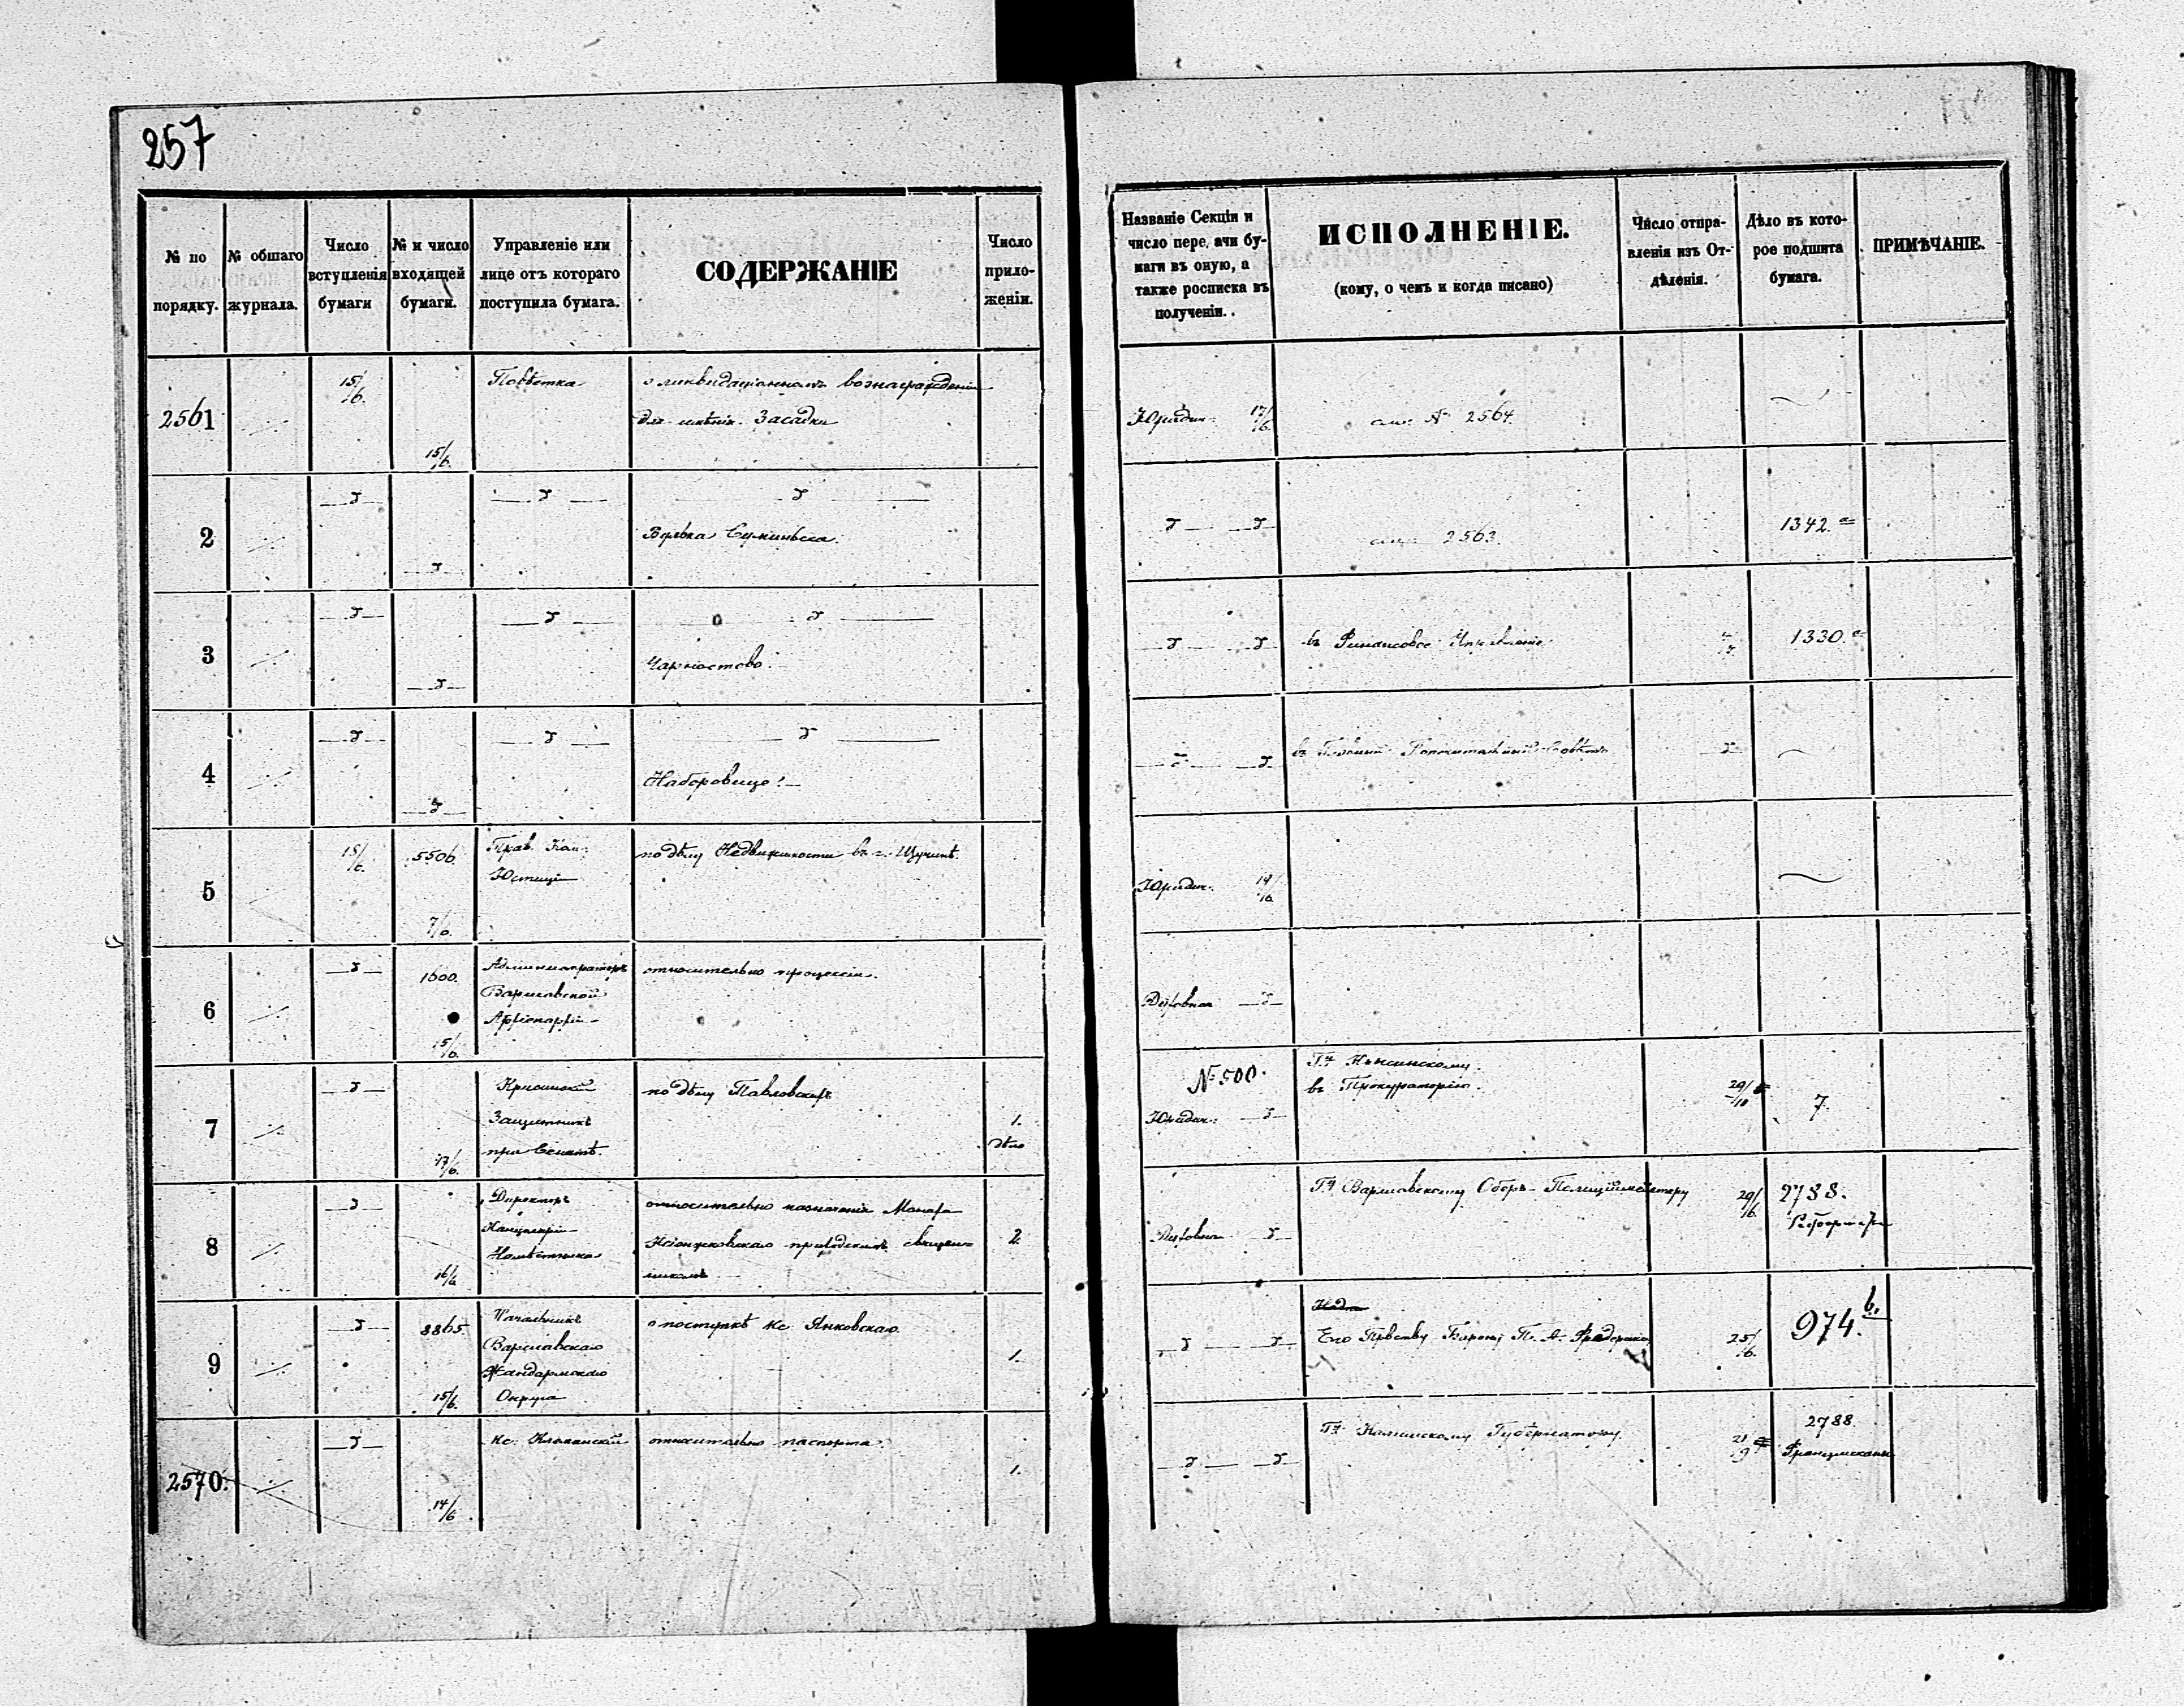 257
№ по порядку.
№ общаго журнала.
Число вступленія бумаги
№ и число входящей бумаги.
Управленіе или лице отъ котораго поступила бумага.
СОДЕРЖАНІЕ
Число прило-женій.
Названіе Секціи и число пере ачи бу-маги въ оную, а также росписка въ полученіи.
ИСПОЛНЕНІЕ.
(кому, о чемъ и когда писано)
Число отпра-вленія изъ От-дѣленія.
Дѣло въ кото-рое подшита бумага.
ПРИМѢЧАНІЕ.
2561 15/6. 15/6. Повѣстка о ликвидаціонномъ вознагражденіи
для имѣнія Засадки
Юридич. 17/6. см. № 2564.
2
Вулька
2563. 1342. а
3
Чарностово.
въ Финансовое Управленіе 1330. а
4
Наборовице.
5 15/6. 5506. 7/6. Прав. Ком.
Юстиціи
по дѣлу Недвижимости въ г. Щучинѣ.
Юридич.
6 1600. 15/6. Администраторъ
Варшавской
Архіепархіи
относительно процессіи.
Духовная
7 17/6.
Защитникъ
при Сенатѣ.
по дѣлу Павловскихъ
1.
дѣло
№ 500.
Юридич.
въ Прокураторію.
29/10 7.
8 16/6 Директоръ
Канцеляріи
Намѣстника
относительно назначенія Монаха
приходскимъ священ-
никомъ
2.
Духовная
Гну Варшавскому Оберъ-Полиціймейстеру
29/6. 2788.
Реформаты
9 8865. 15/6. Начальникъ
Варшавскаго
Жандармскаго
Округа
о поступкѣ кс. Янковскаго.
1.
Его Прев-ву Барону П. А. Фредериксу
25/6. 974. b.
2570. 14/6 кс.
относительно паспорта.
1.
Гну Калишскому Губернатору.
2788
Францискане